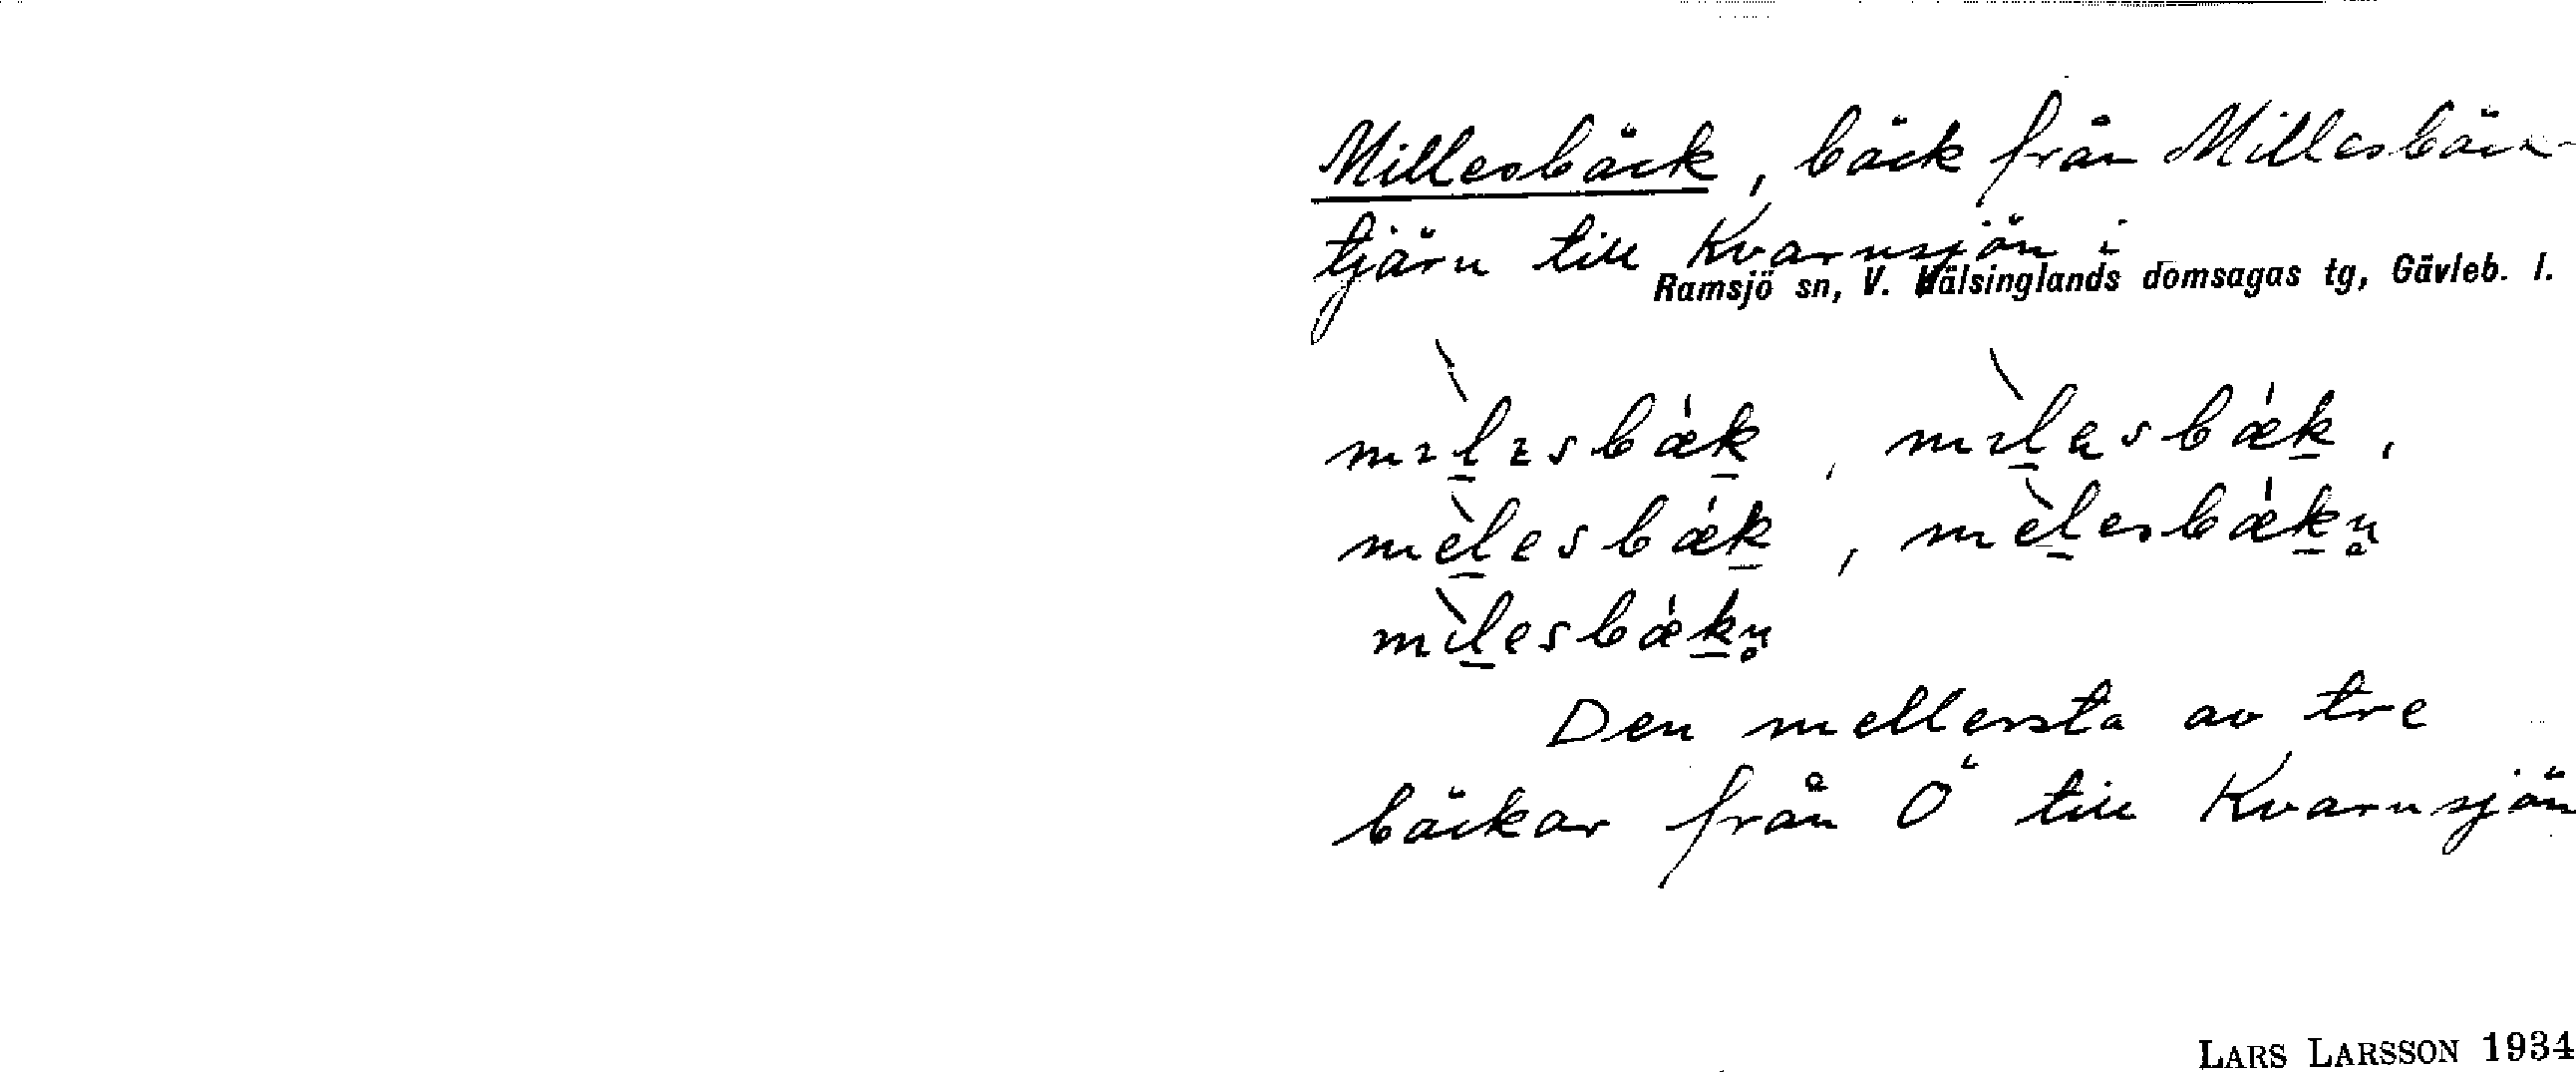 Millesbäck, bäck från Millesbäck-
tjärn till Kvarnsjön i
Ramsjö sn, V. Hälsinglands domsagas tg, Gävleb. l.
mɪ̀l̲ɪsbǽk̲, mɪ̀l̲ęsbǽk̲,
mèl̲esbǽk̲, mèl̲esbǽk̲n̥
mìl̲esbǽk̲n̥
Den mellersta av tre
bäckar från Ö till Kvarnsjön
LARS LARSSON 1934